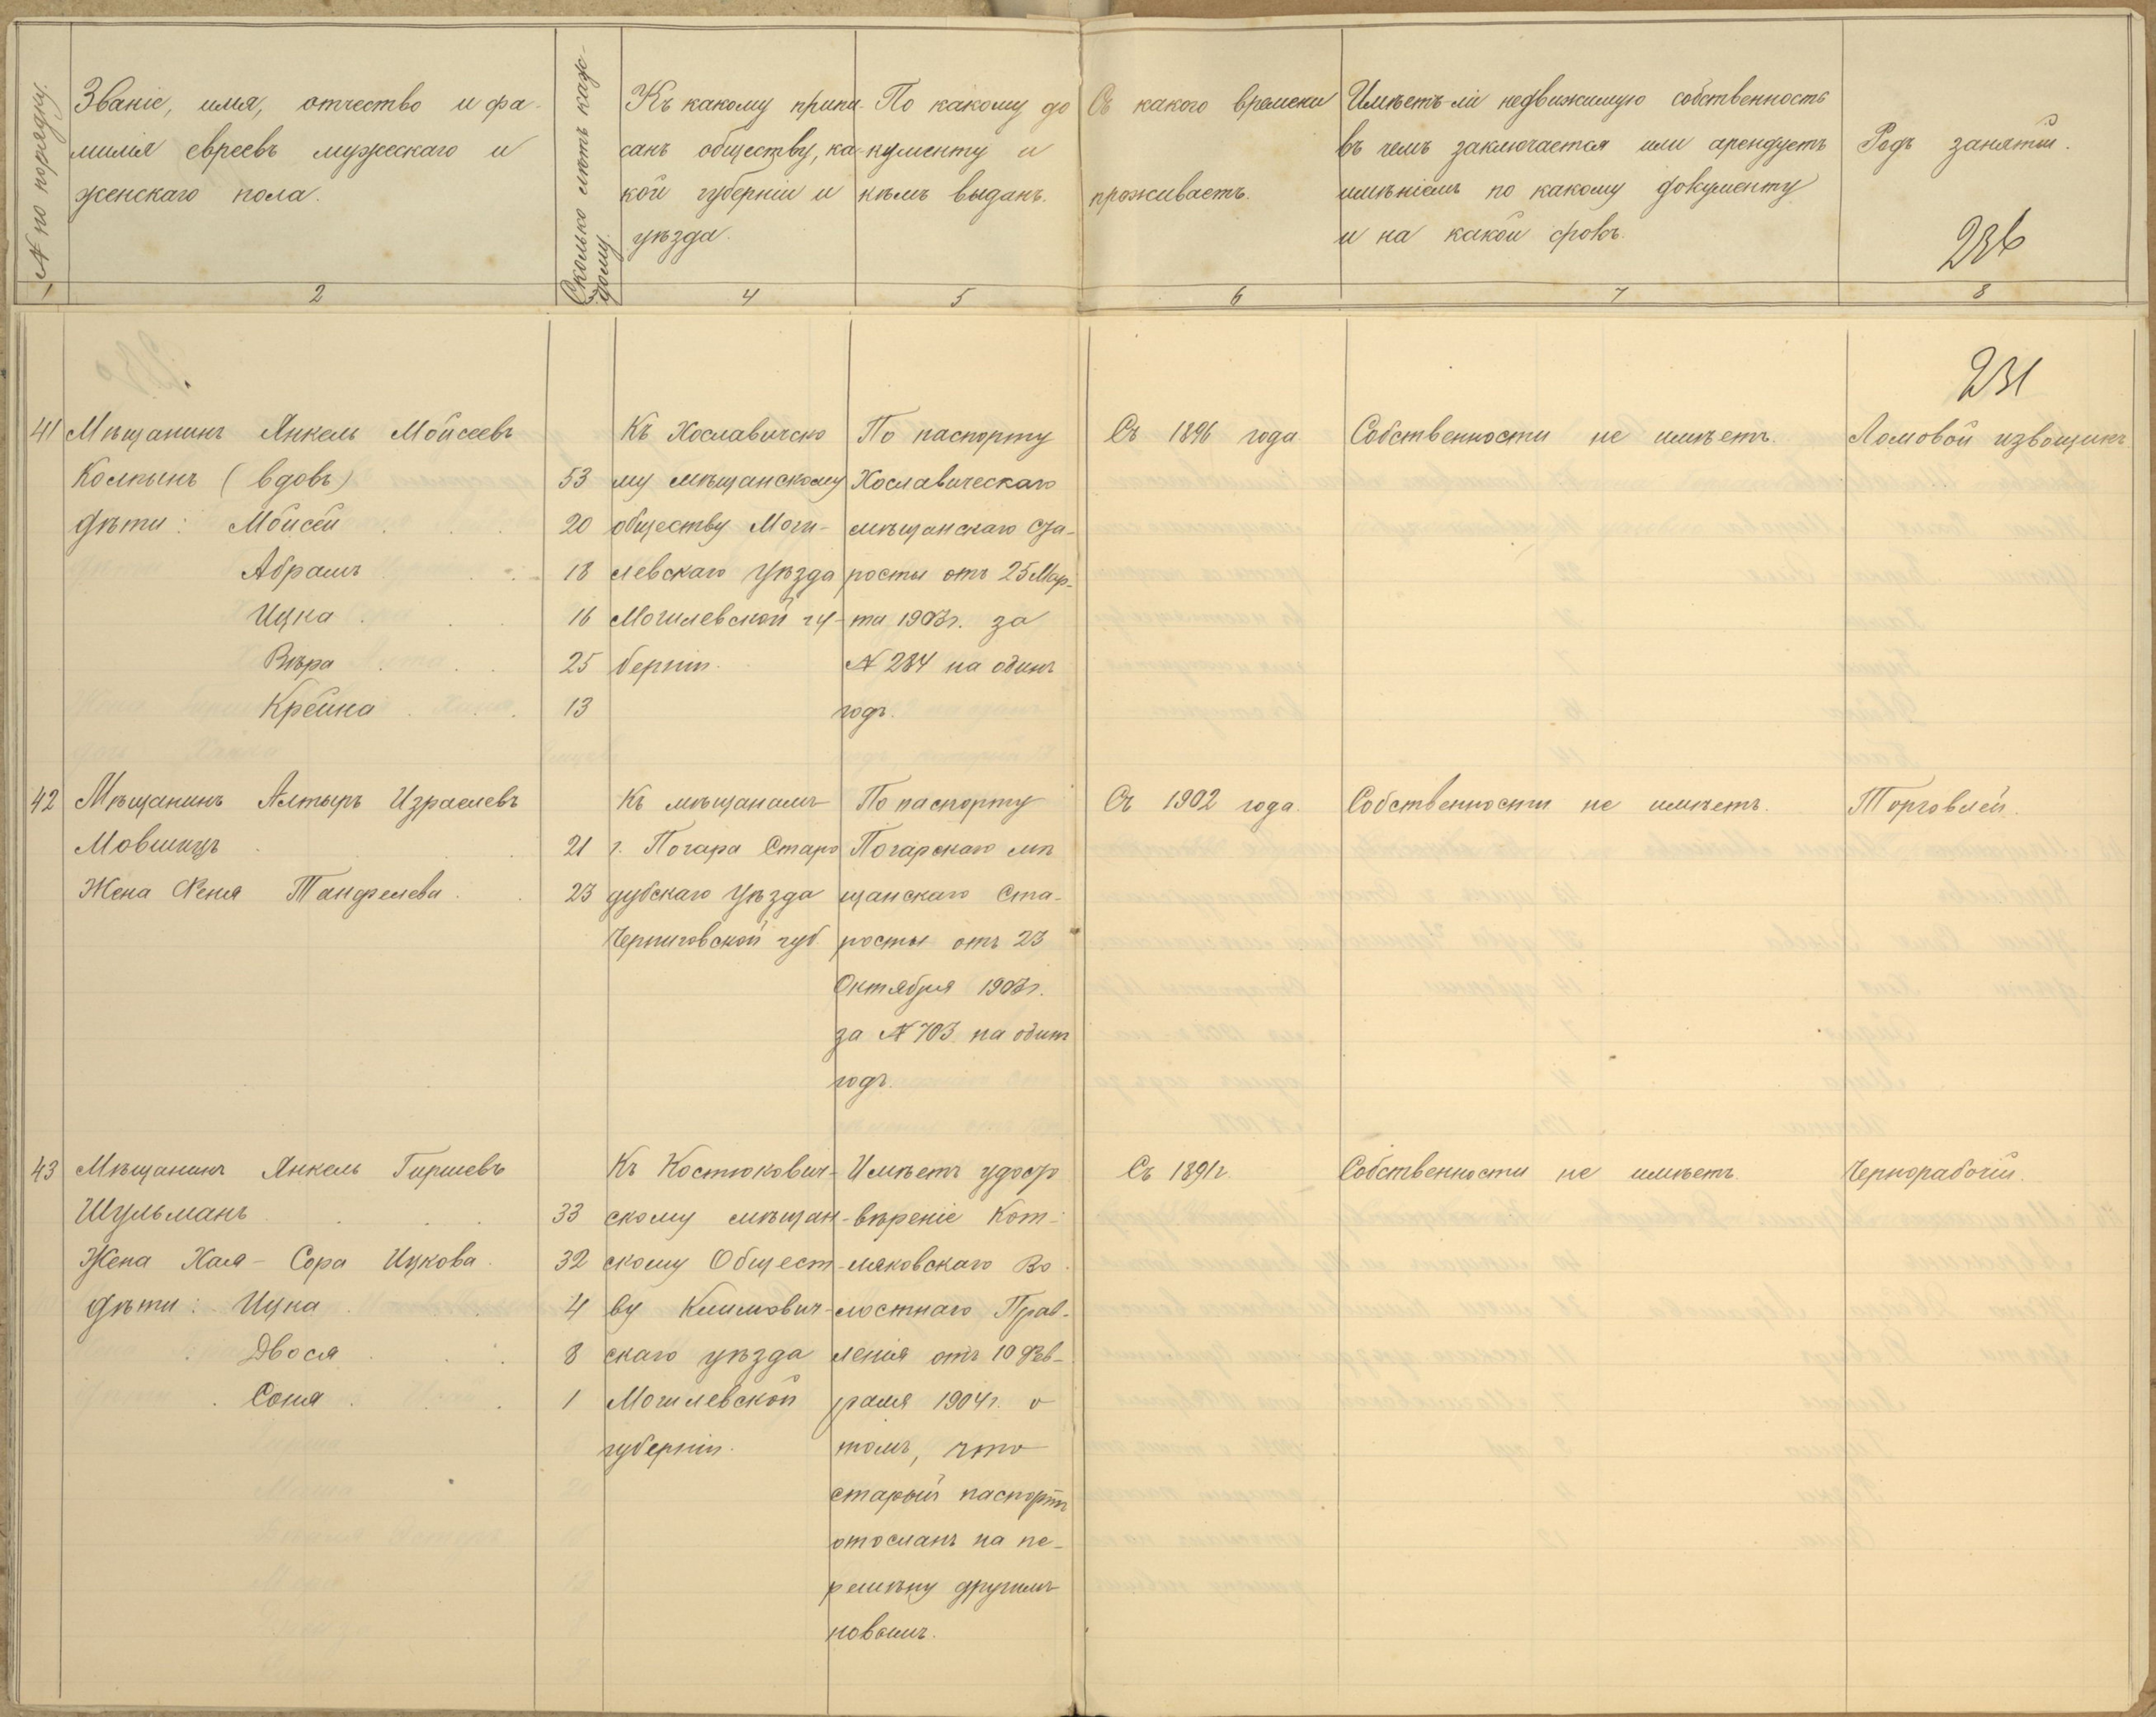 № по порядку.
Званіе, имя, отчество и фа-
милія евреевъ мужескаго и
женскаго пола.
Сколько лѣтъ каж-
дому.
Къ какому припи-
санъ обществу, ка-
кой губерніи и
уѣзда.
По какому до
кументу и
кѣмъ выданъ.
Съ какого времени
проживаетъ.
Имѣетъ-ли недвижимую собственность
въ чемъ заключается или арендуетъ
имѣніемъ по какому документу
и на какой срокъ.
Родъ занятій.
236
1 2 3 4 5 6 7 8
231
41
Мѣщанинъ Янкель Мойсеевъ
Колтынъ (вдовъ) 53
дѣти: Мойсей 20
Абрамъ 18
Ицка 16
Вѣра 25
Крейна 13
Къ Хославичско
му мѣщанскому
обществу Моги-
левскаго уѣзда
Могилевской гу-
берніи.
По паспорту
Хославическаго
мѣщанскаго Ста-
росты отъ 25 Мар-
та 1903г. за
№ 284 на одинъ
годъ.
Съ 1896 года
Собственности не имѣетъ.
Ломовой извощикъ.
42
Мѣщанинъ Алтыръ Израелевъ
Мовшицъ 21
Жена Феня Танфелева 23
Къ мѣщанамъ
г. Погара Старо
дубскаго уѣзда
Черниговской губ.
По паспорту
Погарскаго мѣ
щанскаго Ста-
росты отъ 23
Октября 1903г.
за № 703 на одинъ
годъ.
Съ 1902 года.
Собственности не имѣетъ.
Торговлей.
43
Мѣщанинъ Янкель Гиршевъ
Шульманъ 33
Жена Хая-Сора Ицкова 32
дѣти: Ицка 4
Двося 8
Соня 1
Къ Костюкович-
скому мѣщан-
скому Общест-
ву Климович-
скаго уѣзда
Могилевской
губерніи.
Имѣетъ удосто
вѣреніе Кот-
ляковскаго Во
лостнаго Прав-
ленія отъ 10 Фев-
раля 1904г. о
томъ, что
старый паспортъ
отосланъ на пе-
ремѣну другимъ
новымъ.
Съ 1891г.
Собственности не имѣетъ.
Чернорабочій.